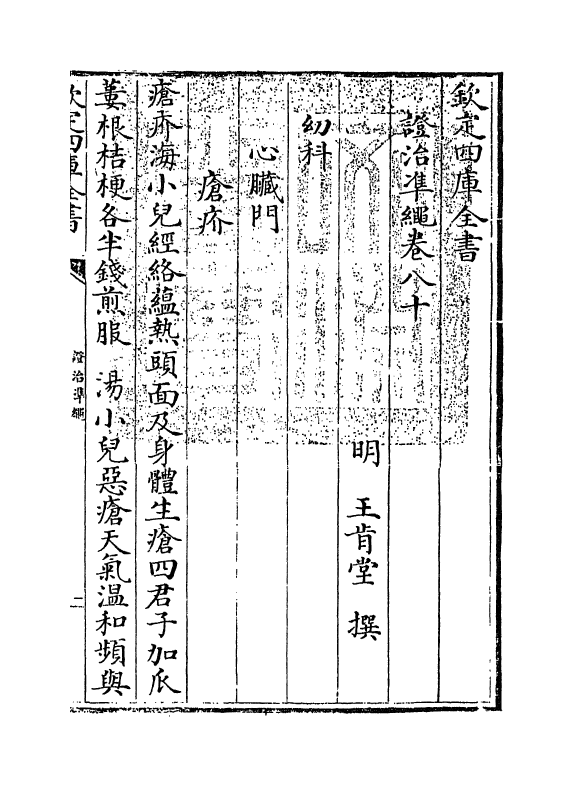 欽定四庫全書
證治準繩卷八十
明 王肯堂 撰
幼科
心臟門
瘡疥
瘡疥海小兒經絡蘊熱頭面及身體生瘡四君子加瓜
蔞根桔梗各半錢煎服 湯小兒惡瘡天氣溫和頻與
欽定四庫全書
證治準繩